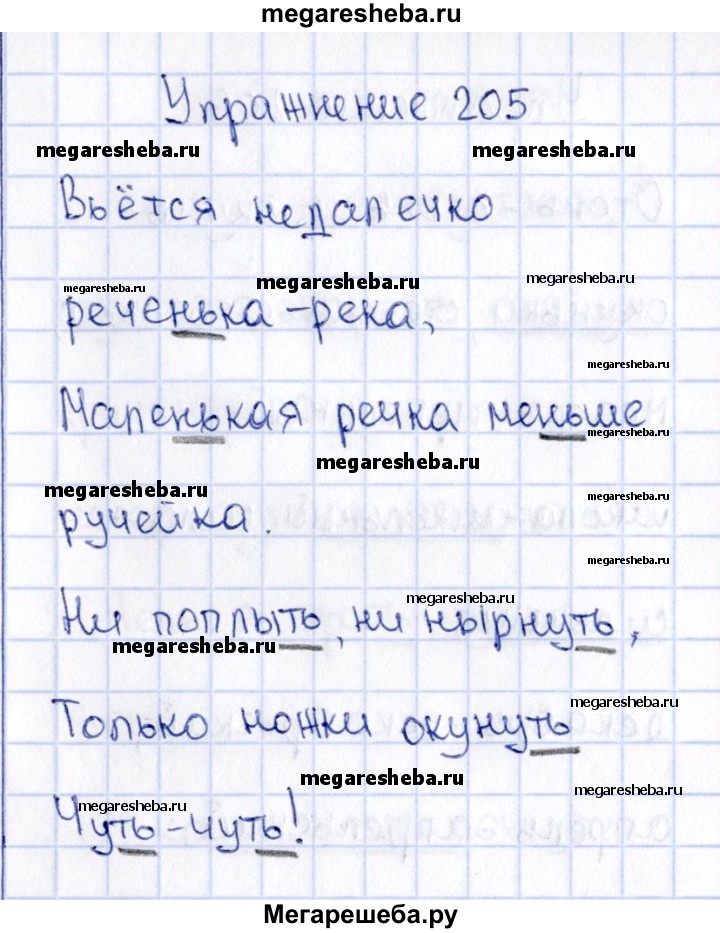 megaresheba.ru
Упражнение 205
megaresheba.ru megaresheba.ru
Вьётся недалечко
megaresheba.ru megaresheba.ru megaresheba.ru
реченька-река,
megaresheba.ru
Маленькая речка меньше
megaresheba.ru
megaresheba.ru
megaresheba.ru megaresheba.ru
ручейка.
megaresheba.ru
megaresheba.ru
Ни поплыть, ни нырнуть,
megaresheba.ru
megaresheba.ru
Только ножки окунуть
megaresheba.ru megaresheba.ru
megaresheba.ru
Чуть-чуть!
Мегарешеба.ру